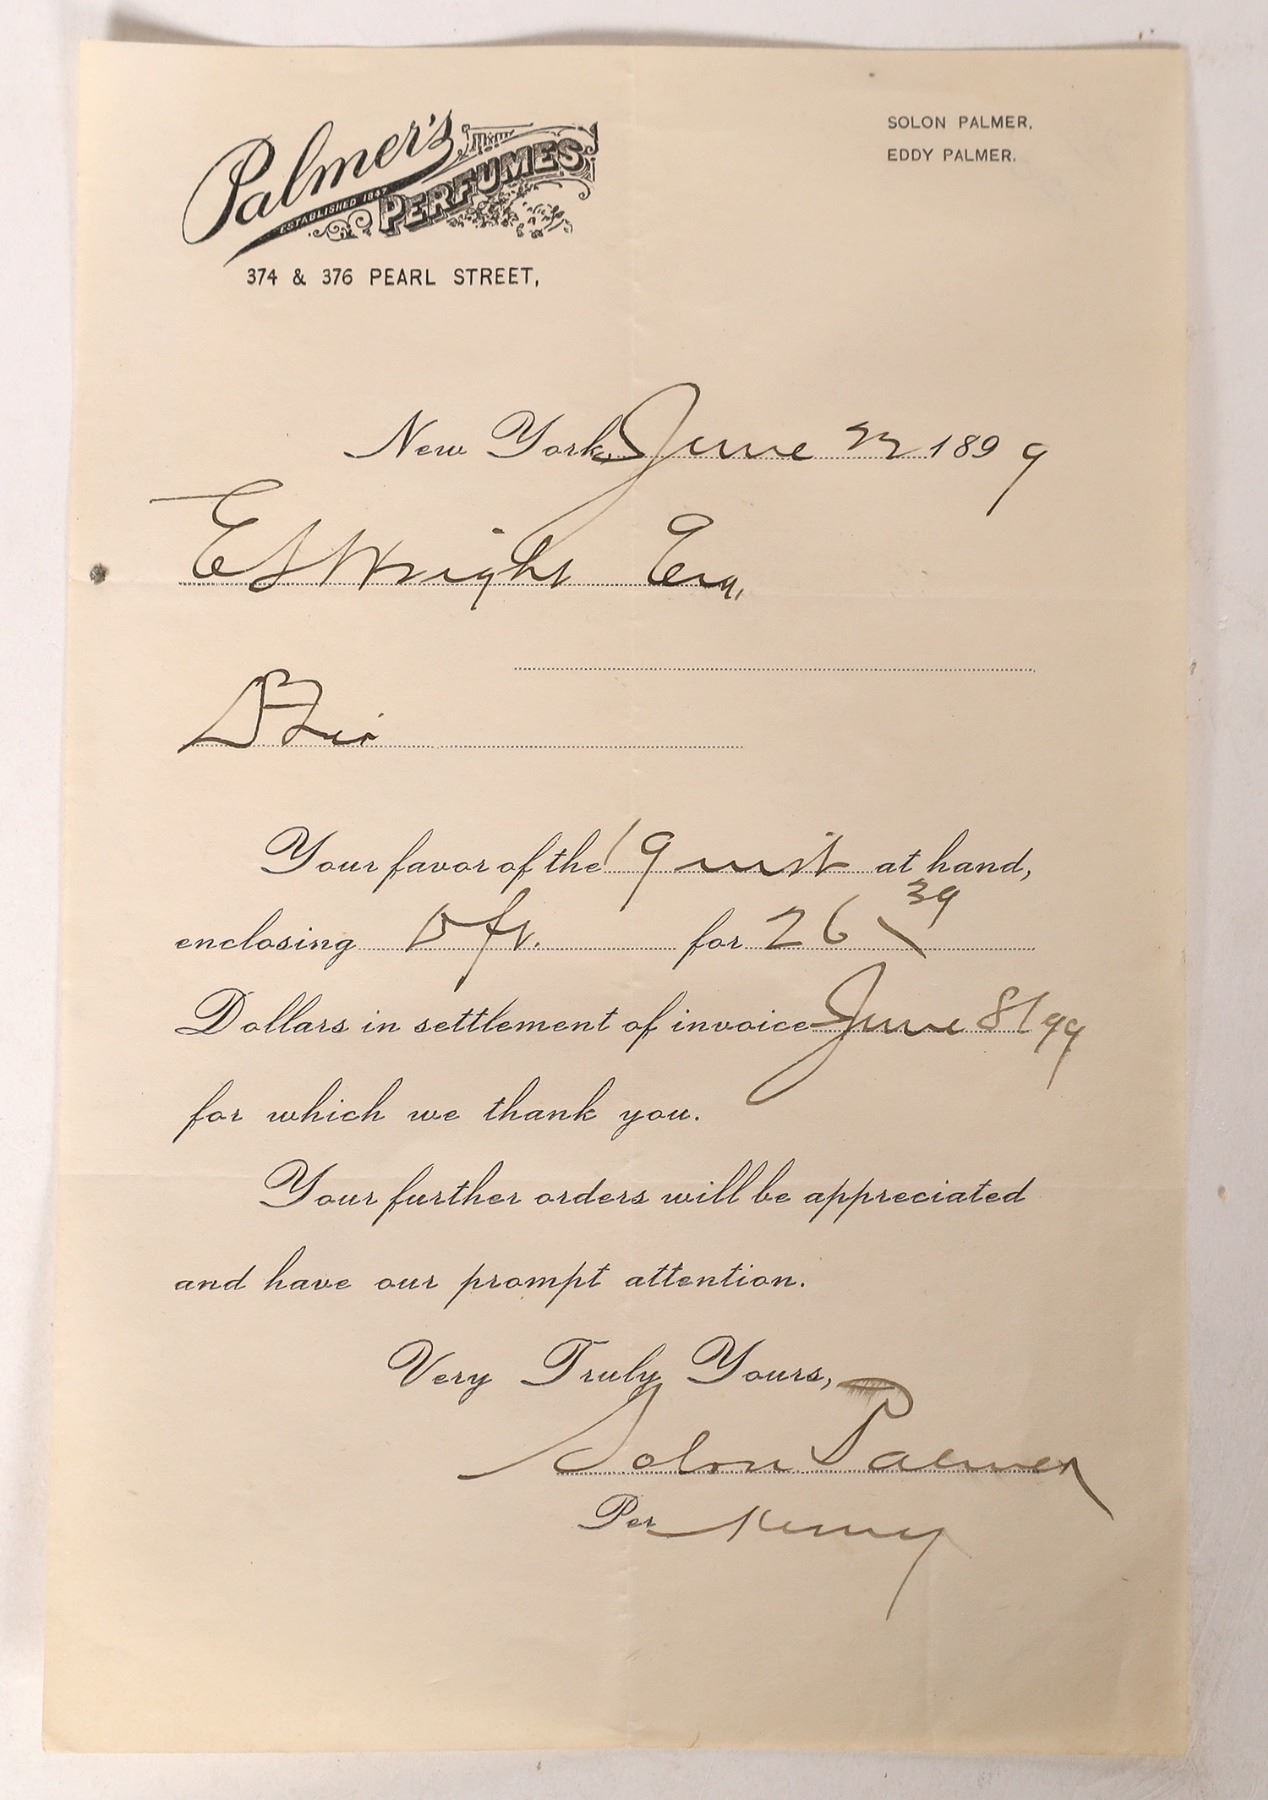 Palmer's
ESTABLISHED 1847
PERFUMES
374 & 376 PEARL STREET,
SOLON PALMER,
EDDY PALMER.
New York, June 22 1899
E S Wright Esq.
D Sir
Your favor of the 19 inst at hand,
enclosing Dft. for 26 39
Dollars in settlement of invoice June 8/99
for which we thank you.
Your further orders will be appreciated
and have our prompt attention.
Very Truly Yours,
Solon Palmer
Per